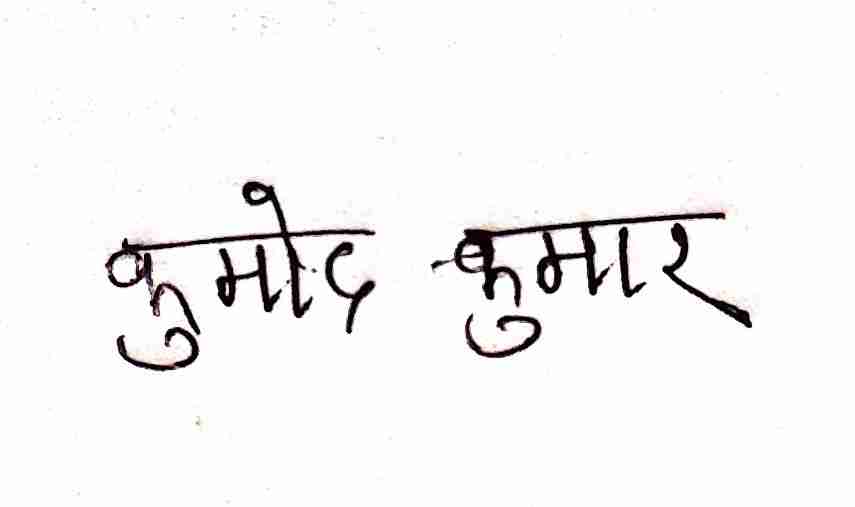 कुमोद कुमार